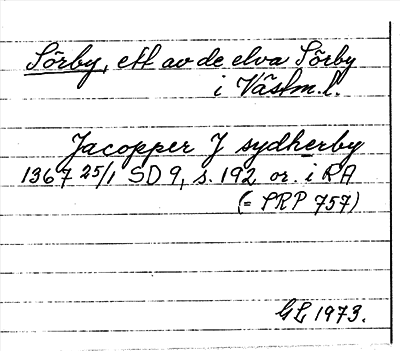 Sörby, ett av de elva Sörby
i Västm.l.
Jacopper J sydherby
1367 25/1 SD 9, s. 192 or. i RA
(= SRP 757)
GL 1973.